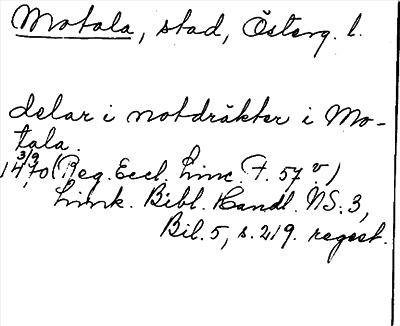 Motala, stad, Österg. l.
delar i notdräkter i Mo-
tala.
3/9
1470 (Reg. Eccl. Linc. F. 57 v)
Link. Bibl. Handl. NS. 3,
Bil. 5, s. 219. regest.